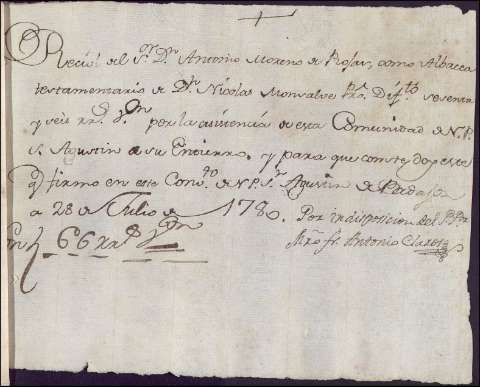 +
Reciví del Sr. Dn. Antonio Moreno de Rojas, como Albacea
testamentario de Dn. Nicolas Monsalve Pro. Difto. sesenta
y seis rrs. Von. por la asistencia de esta Comunidad de N.P.
S. Agustin a su Entierro. y para que conste doy este
qe. firmo en este Convto. de N.P. Sr. Agustin de
a 28 de Julio de 1780. Por indisposicion del P. Pr.
66 rrs. Von. Mro. fr. Antonio